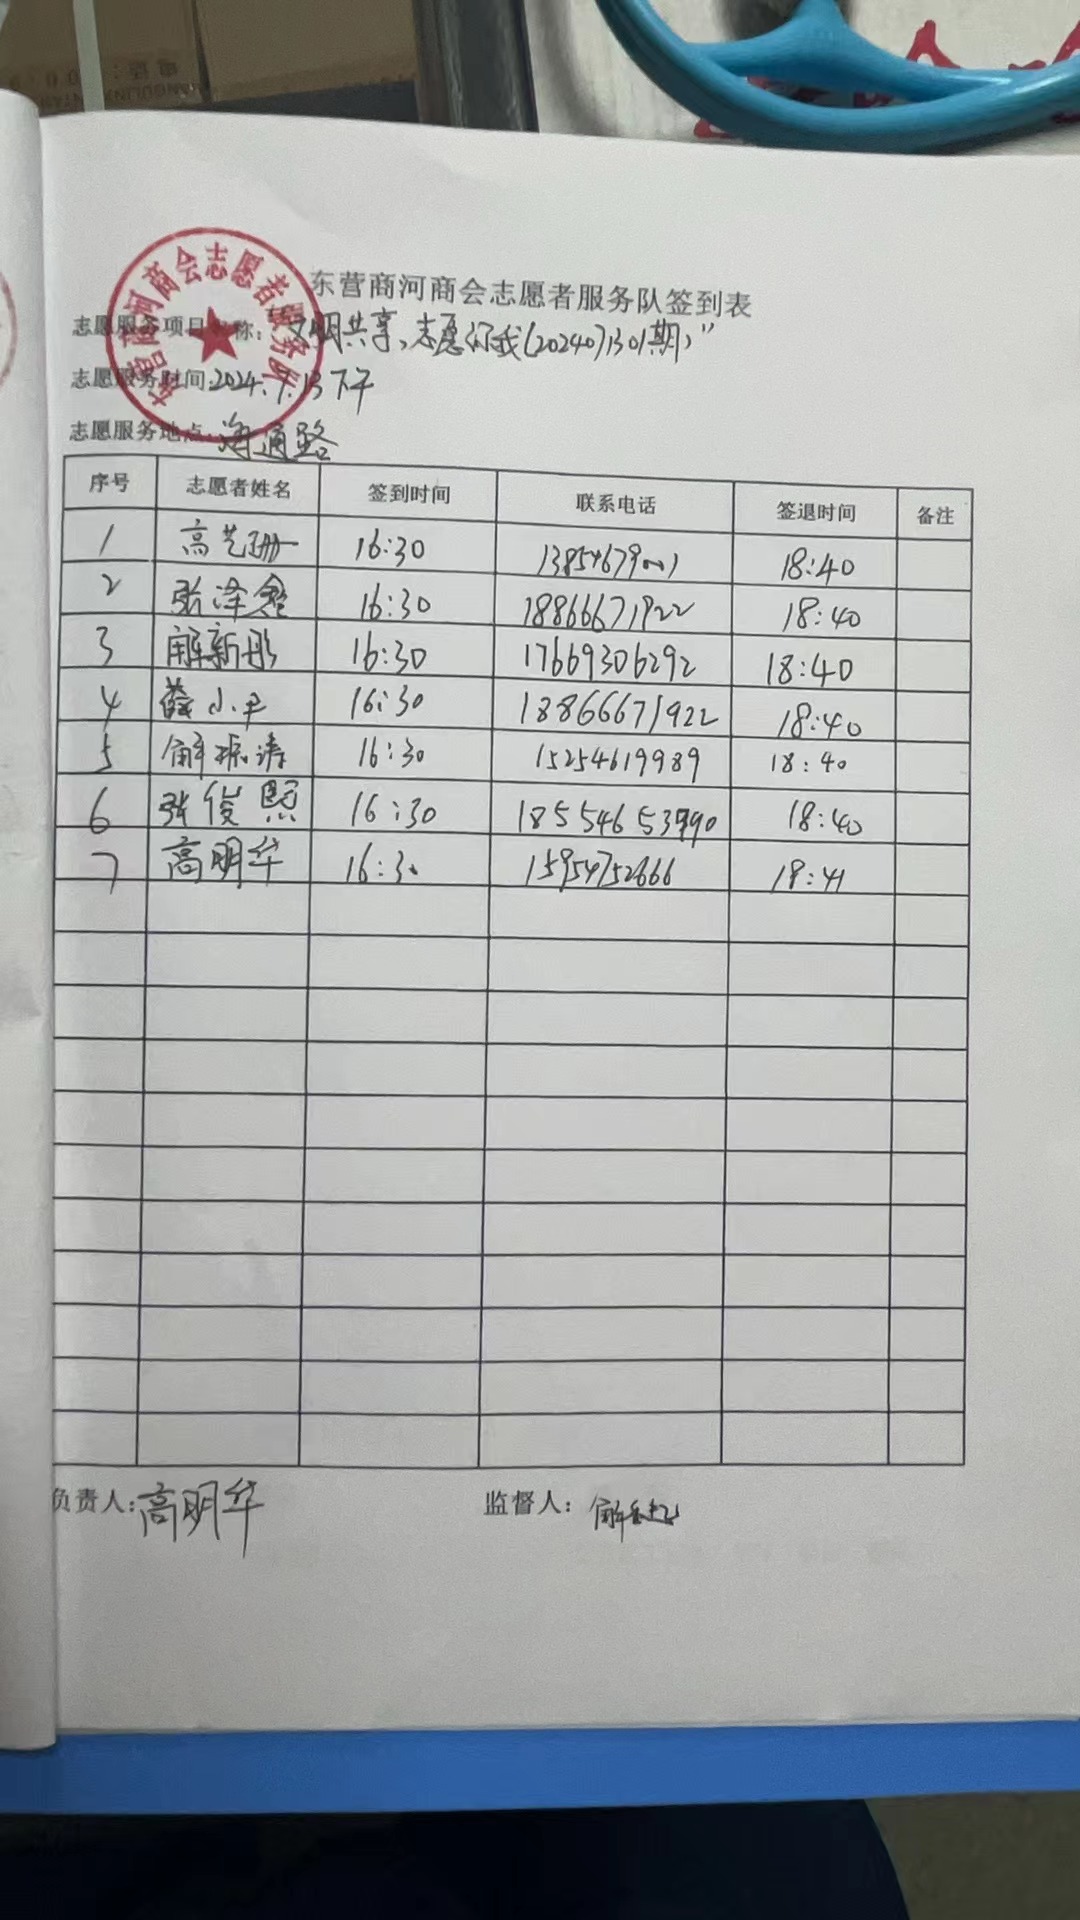 东营商河商会志愿者服务队
东营商河商会志愿者服务队签到表
志愿服务项目名称:“文明共享,志愿行我(2024071301期)”
志愿服务时间:2024.7.13下午
志愿服务地点:海通路
序号 志愿者姓名 签到时间 联系电话 签退时间 备注
1 高艺珊 16:30 13854679001 18:40
2 张泽鑫 16:30 18866671922 18:40
3 解新彤 16:30 17669306292 18:40
4 薛小平 16:30 18866671922 18:40
5 解振涛 16:30 15254619989 18:40
6 张俊熙 16:30 18554653990 18:40
7 高明华 16:30 15954752666 18:41
负责人:高明华 监督人:解